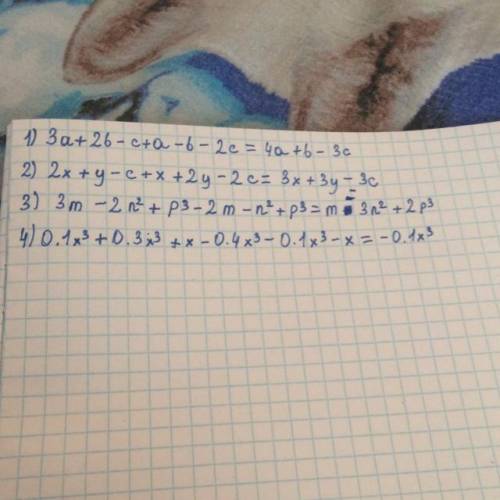 1) 3a+2b-c+a-b-2c=4a+b-3c
2) 2x+y-c+x+2y-2c=3x+3y-3c
3) 3m-2n²+p³-2m-n²+p³=m-3n²+2p³
4) 0.1x³+0.3x³+x-0.4x³-0.1x³-x=-0.1x³